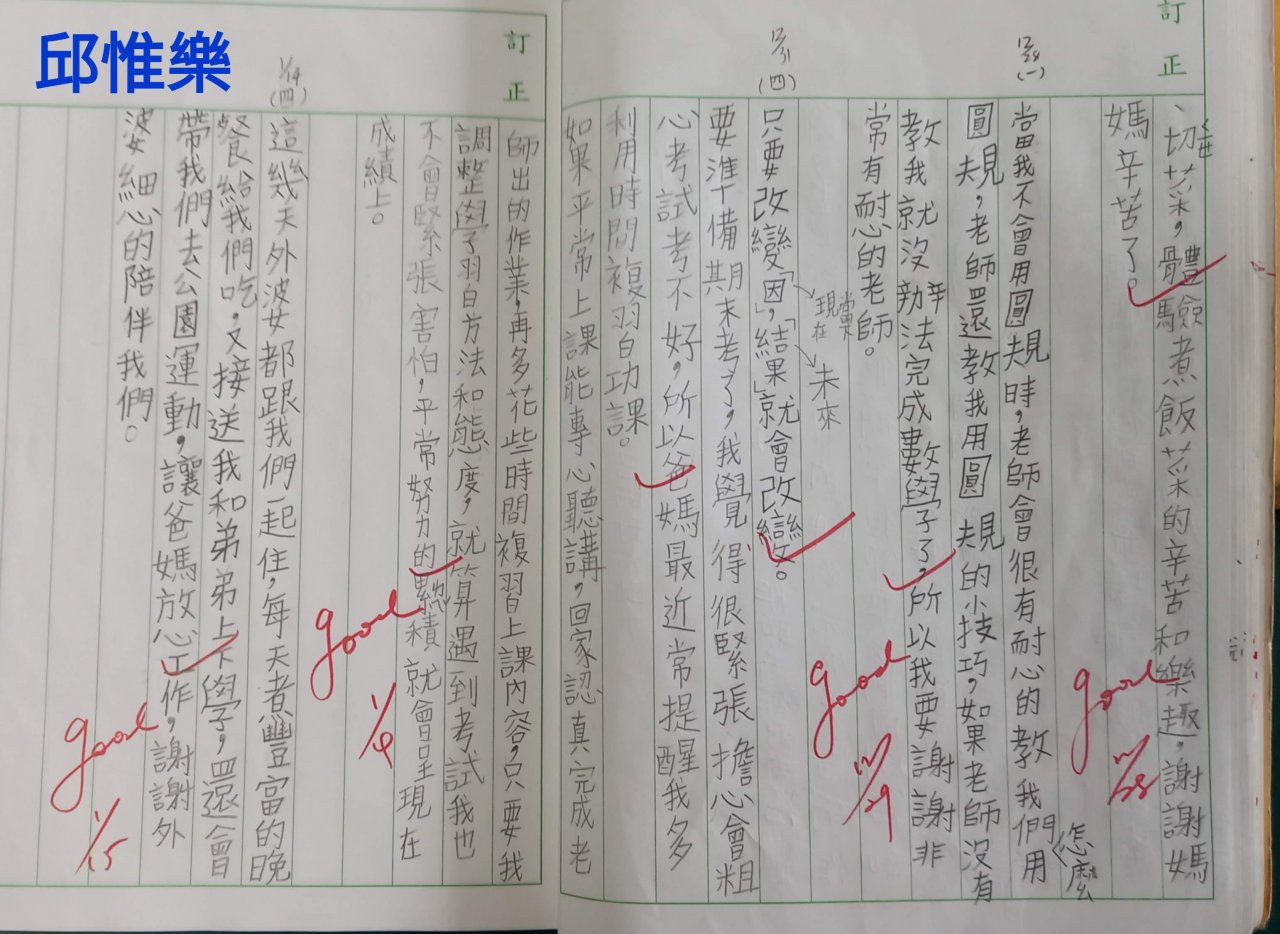 邱惟樂
訂正
、切菜，體驗煮飯菜的辛苦和樂趣，謝謝媽
媽辛苦了。
good
12/28
12/28
(一)
當我不會用圓規時，老師會很有耐心的教我們用
怎麼
圓規，老師還教我用圓規的小技巧，如果老師沒有
教我就沒辦法完成數學了，所以我要謝謝非
常有耐心的老師。
good
12/29
12/31
(四)
現在
當果
未來
只要改變「因」，「結果」就會改變。
要準備期末考了，我覺得很緊張擔心會粗
心考試考不好，所以爸媽最近常提醒我多
利用時間複習功課。
如果平常上課能專心聽講，回家認真完成老
訂正
師出的作業，再多花些時間複習上課內容，只要我
調整學習方法和態度，就算遇到考試我也
不會緊張害怕，平常努力的累積就會呈現在
成績上。
good
1/4
1/14
(四)
這幾天外婆都跟我們一起住，每天煮豐富的晚
餐給我們吃，又接送我和弟弟上下學，還會
帶我們去公園運動，讓爸媽放心工作，謝謝外
婆細心的陪伴我們。
good
1/15